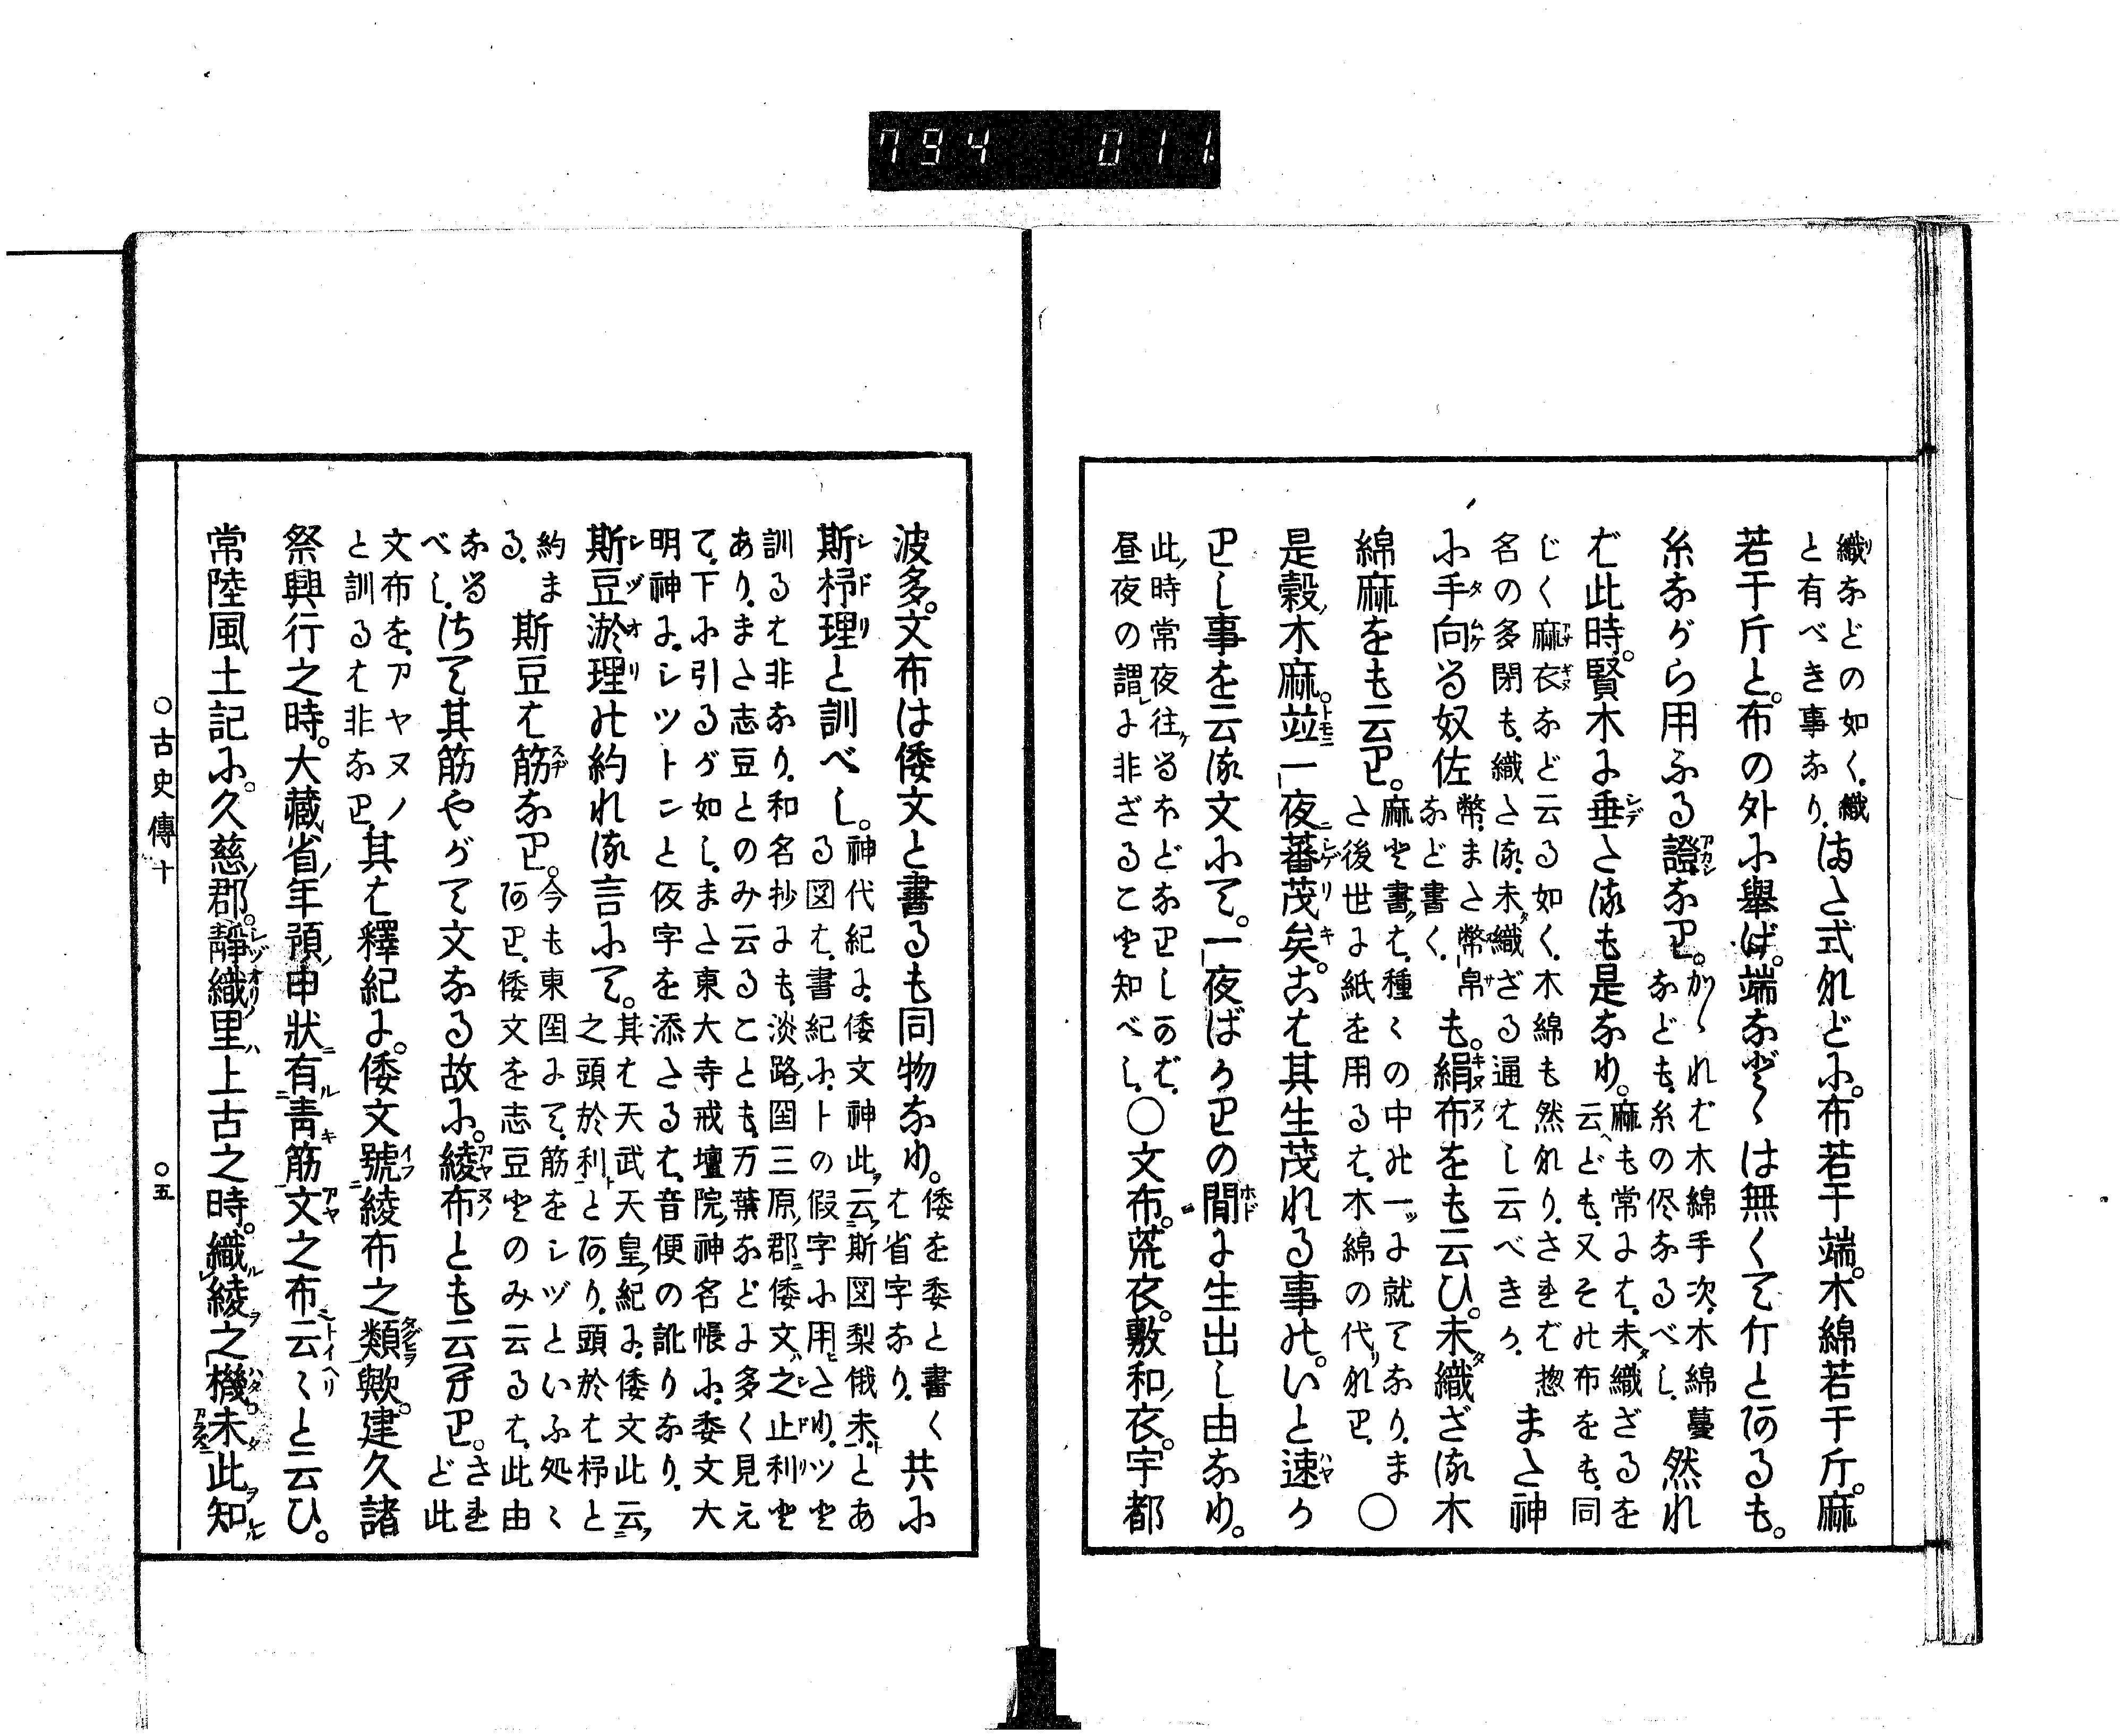 794 011
織などの如く、織
と有べき事なり、
また式れどに。布若干端。木綿若干斤。麻
若干斤と。布の外に擧ば。端などゝは無くて斤とあるも。
糸ながら用ふる證なり。
かゝれば木綿手次、木綿蔓
なども、糸の侭なるべし、
然れ
ば此時。賢木に垂たるも是なり。
麻も常には、未織ざるを
云へども、又その布をも、同
じく麻衣など云る如く、木綿も然れり、されば惣
名の多閇も、織たる、未織ざる通はし云べきか、
また神
に手向る奴佐
幣、また幣帛
など書く、
も。絹布をも云ひ。未織ざる木
綿麻をも云り。
麻と書くは、種〻の中の一に就てなり、ま
た後世に紙を用るは、木綿の代れり、
○
是穀木麻。並一夜蕃茂矣。こは其生茂れる事の。いと速か
りし事を云る文にて。一夜ばかりの間に生出し由なり。
此時常夜往るほどなりしかば、
昼夜の謂に非ざること知べし、
○文布。荒衣。敷和衣。宇都
波多。文布は倭文と書るも同物なり。
倭を委と書く
は省字なり、
共に
斯杼理と訓べし。
神代紀に、倭文神此云斯図梨俄未、とあ
る図は、書紀に、トの假字に用たり、ツと
訓るは非なり、和名抄にも、淡路国三原郡倭文之止利と
あり、また志豆とのみ云ることも、万葉などに多く見え
て、下に引るが如し、また東大寺戒壇院神名帳に、委文大
明神に、シツトンと仮字を添たるは、音便の訛りなり、
斯豆淤理の約れる言にて。
其は天武天皇紀に、倭文此云
之頭於利とあり、頭於は杼と
約ま
る、
斯豆は筋なり。
今も東国にて、筋をシヅといふ処〻
あり、倭文を志豆とのみ云るは、此由
なる
べし、
さて其筋やがて文なる故に。綾布とも云なり。
され
ど此
文布を、アヤヌノ
と訓るは非なり、
其は釋紀に。倭文號綾布之類歟。建久諸
祭興行之時。大藏省年預申狀有青筋文之布云〻と云ひ。
常陸風土記に。久慈郡。靜織里上古之時。織綾之機未此知
○古史傳十
○五